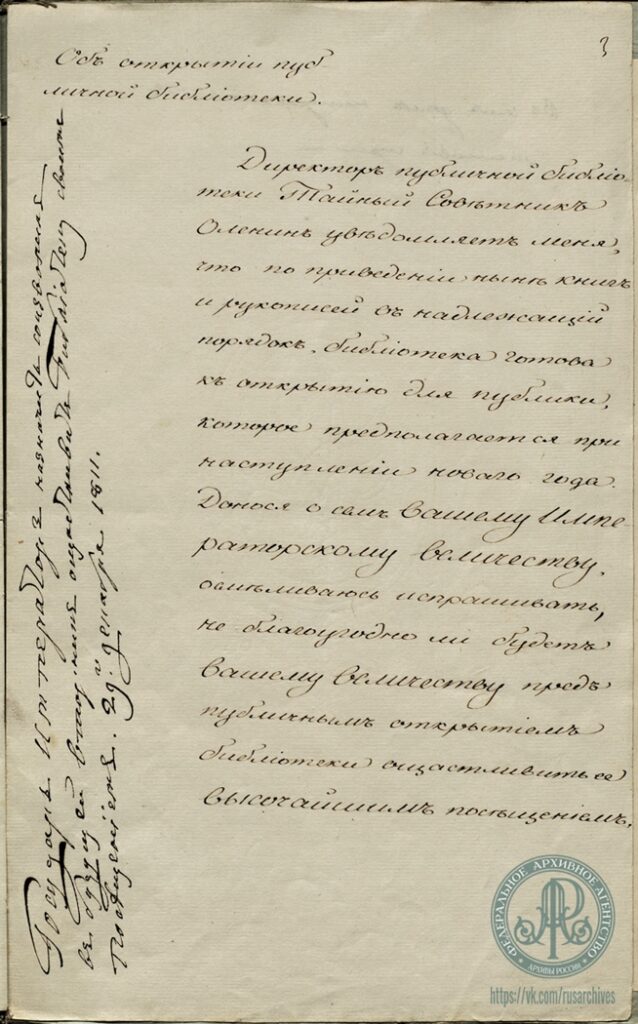 3
Объ открытіи пуб
личной библіотеки.
Директоръ публичной библіо-
теки Тайный Совѣтникъ
Оленинъ увѣдомляетъ меня,
что по приведеніи нынѣ книгъ
и рукописей въ надлежащій
порядокъ, библіотека готова
къ открытію для публики,
которое предполагается при
наступленіи новаго года.
Донося о семъ вашему Импе-
раторскому величеству,
осмѣливаюсь испрашивать,
не благоугодно ли будетъ
вашему величеству предъ
публичнымъ открытіемъ
библіотеки ощастливить ее
высочайшимъ посѣщеніемъ.
Государь Императоръ назначить соизволилъ
въ будущей вторникъ ощастливить библіотеку своимъ
посещеніемъ. 29.го декабря 1811.
ФЕДЕРАЛЬНОЕ АРХИВНОЕ АГЕНТСТВО
АРХИВЫ РОССИИ
https://vk.com/rusarchives